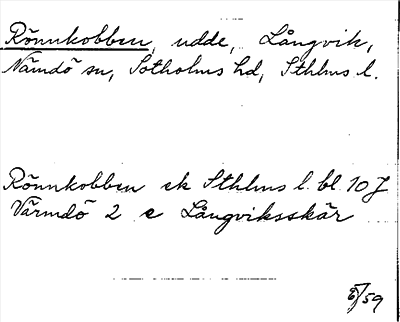 Rönnkobben, udde, Långvik,
Nämdö sn, Sotholms hd, Sthlms l.
Rönnkobben ek Sthlms l. bl. 10 J
Värmdö 2 c Långviksskär
/59